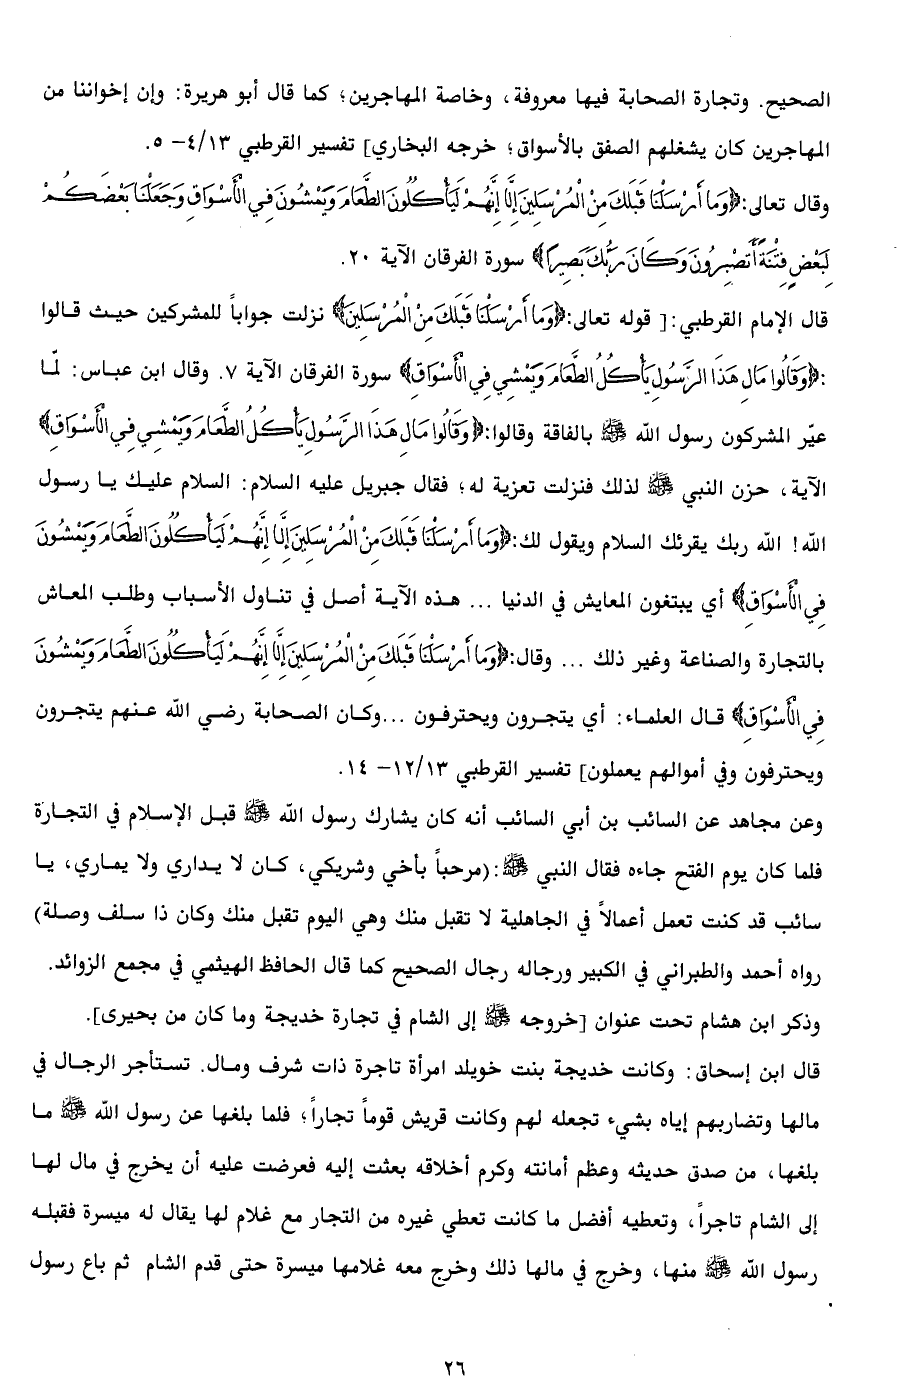 الصحيح. وتجارة الصحابة فيها معروفة، وخاصة المهاجرين؛ كما قال أبو هريرة: وإن إخواننا من
المهاجرين كان يشغلهم الصفق بالأسواق؛ خرجه البخاري] تفسير القرطبي ٤/١٣– ٥.
وقال تعالى:﴿وَمَا أَرْسَلْنَا قَبْلَكَ مِنْ الْمُرْسَلِينَ إِلَّا إِنَّهُمْ لَيَأْكُلُونَ الطَّعَامَ وَيَمْشُونَ فِي الْأَسْوَاقِ وَجَعَلْنَا بَعْضَكُمْ
لِبَعْضٍ فِتْنَةً أَتَصْبِرُونَ وَكَانَ رَبُّكَ بَصِيرًا﴾ سورة الفرقان الآية ٢٠.
قال الإمام القرطبي:[ قوله تعالى:﴿وَمَا أَرْسَلْنَا قَبْلَكَ مِنْ الْمُرْسَلِينَ﴾ نزلت جواباً للمشركين حيث قالوا
:﴿وَقَالُوا مَالِ هَذَا الرَّسُولِ يَأْكُلُ الطَّعَامَ وَيَمْشِي فِي الْأَسْوَاقِ﴾ سورة الفرقان الآية ٧. وقال ابن عباس: لمّا
عيّر المشركون رسول الله ﷺ بالفاقة وقالوا:﴿وَقَالُوا مَالِ هَذَا الرَّسُولِ يَأْكُلُ الطَّعَامَ وَيَمْشِي فِي الْأَسْوَاقِ﴾
الآية، حزن النبي ﷺ لذلك فنزلت تعزية له؛ فقال جبريل عليه السلام: السلام عليك يا رسول
الله! الله ربك يقرئك السلام ويقول لك:﴿وَمَا أَرْسَلْنَا قَبْلَكَ مِنْ الْمُرْسَلِينَ إِلَّا إِنَّهُمْ لَيَأْكُلُونَ الطَّعَامَ وَيَمْشُونَ
فِي الْأَسْوَاقِ﴾ أي يبتغون المعايش في الدنيا ... هذه الآية أصل في تناول الأسباب وطلب المعاش
بالتجارة والصناعة وغير ذلك ... وقال:﴿وَمَا أَرْسَلْنَا قَبْلَكَ مِنْ الْمُرْسَلِينَ إِلَّا إِنَّهُمْ لَيَأْكُلُونَ الطَّعَامَ وَيَمْشُونَ
فِي الْأَسْوَاقِ﴾ قال العلماء: أي يتجرون ويحترفون ...وكان الصحابة رضي الله عنهم يتجرون
ويحترفون وفي أموالهم يعملون] تفسير القرطبي ١٢/١٣– ١٤.
وعن مجاهد عن السائب بن أبي السائب أنه كان يشارك رسول الله ﷺ قبل الإسلام في التجارة
فلما كان يوم الفتح جاءه فقال النبي ﷺ:(مرحباً بأخي وشريكي، كان لا يداري ولا يماري، يا
سائب قد كنت تعمل أعمالاً في الجاهلية لا تقبل منك وهي اليوم تقبل منك وكان ذا سلف وصلة)
رواه أحمد والطبراني في الكبير ورجاله رجال الصحيح كما قال الحافظ الهيثمي في مجمع الزوائد.
وذكر ابن هشام تحت عنوان [خروجه ﷺ إلى الشام في تجارة خديجة وما كان من بحيرى].
قال ابن إسحاق: وكانت خديجة بنت خويلد امرأة تاجرة ذات شرف ومال. تستأجر الرجال في
مالها وتضاربهم إياه بشيء تجعله لهم وكانت قريش قوماً تجاراً؛ فلما بلغها عن رسول الله ﷺ ما
بلغها، من صدق حديثه وعظم أمانته وكرم أخلاقه بعثت إليه فعرضت عليه أن يخرج في مال لها
إلى الشام تاجراً، وتعطيه أفضل ما كانت تعطي غيره من التجار مع غلام لها يقال له ميسرة فقبله
رسول الله ﷺ منها، وخرج في مالها ذلك وخرج معه غلامها ميسرة حتى قدم الشام ثم باع رسول
٢٦